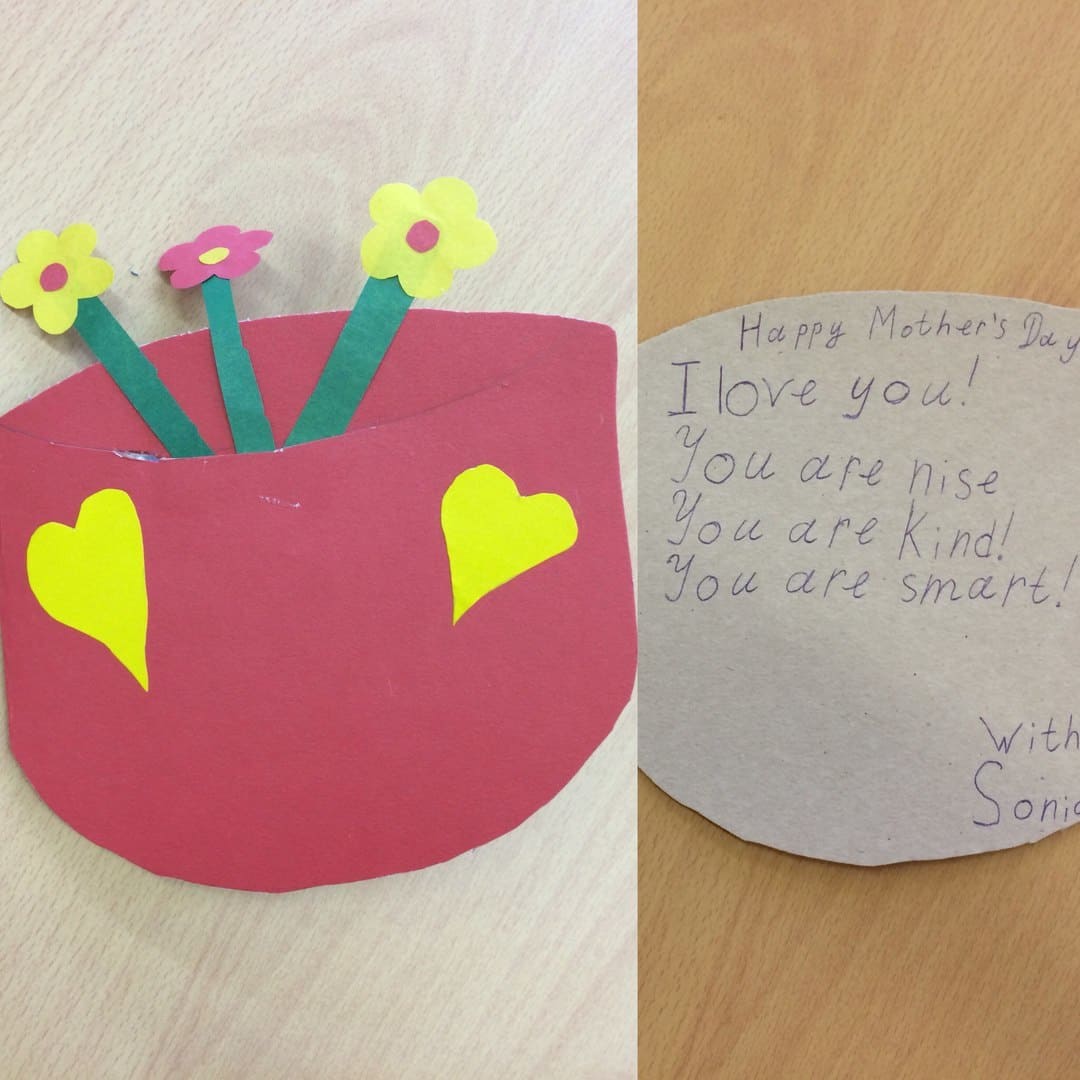 Happy Mother's Day
I love you!
You are nise
You are kind!
You are smart!
With